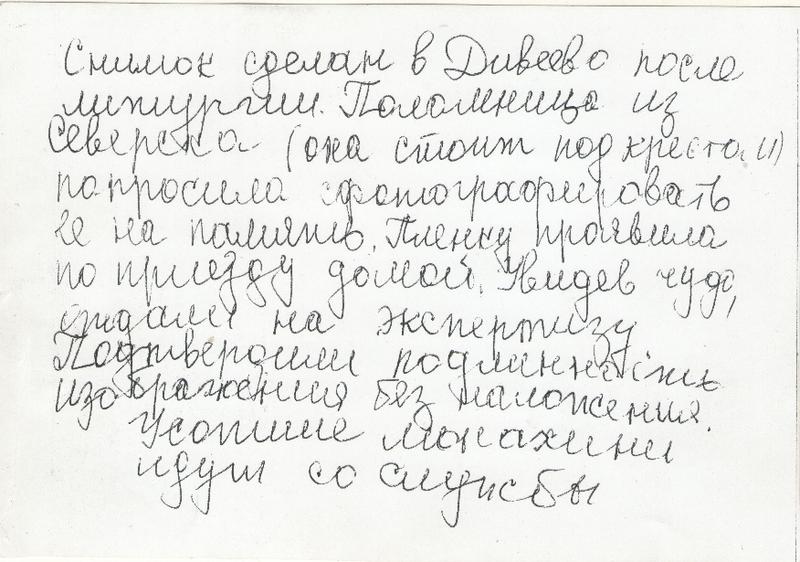 Снимок сделан в Дивеево после
литургии. Паломница из
Северска (она стоит под крестом)
попросила сфотографировать
ее на память. Пленку проявила
по приезду домой. Увидев чудо,
отдали на экспертизу
Подтвердили подлинность
изображения без наложения.
Усопшие монахини
идут со службы